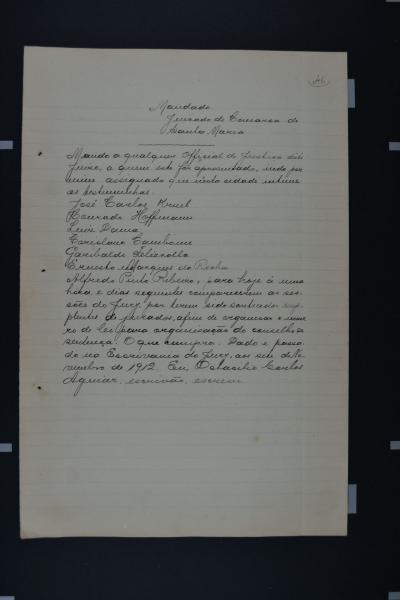 Mandado
Juizado de Comarca de
Santa Maria
Mando a qualquer Official de Justica deste
Juizo, a quem este for apresentado, indo por
mim assignado que nesta cidade intime
as testimunhas:
José Carlos Kruel
Conrado Hoffmann
Luiz
Coriolano Camboim
Garibaldo
Ernesto Marques da Rocha
Alfredo Pinto Ribeiro, para hoje á uma
hora e dias seguintes comparecerem as ses-
sões do Jury, por terem sido sorteados sup-
plentes de jurados, afim de organisar o nume-
ro de lei para organisação do conselho de
sentença. O que cumpra. Dado e passa-
do na Escrivania do Jury, aos sete de No-
vembro de 1912. Eu, Octacilio Carlos
Aguiar, escrivão, escrevi